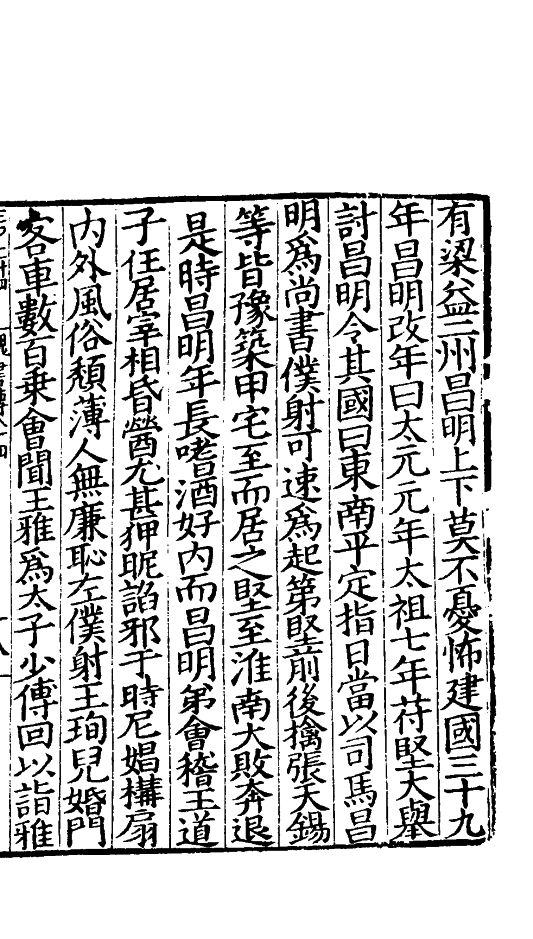 有梁益二州昌明上下莫不憂怖建國三十九
年昌明改年曰太元元年太祖七年苻堅大舉
討昌明令其國曰東南平定指日當以司馬昌
明爲尚書僕射可速爲起第堅前後擒張天錫
等皆豫築甲宅至而居之堅至淮南大敗奔退
是時昌明年長嗜酒好内而昌明弟會稽王道
子任居宰相昏㽦尤甚狎昵諂邪于時尼娼構扇
内外風俗頹薄人無廉恥左僕射王珣兒婚門
客車數百乗會聞王雅爲太子少傅回以詣雅